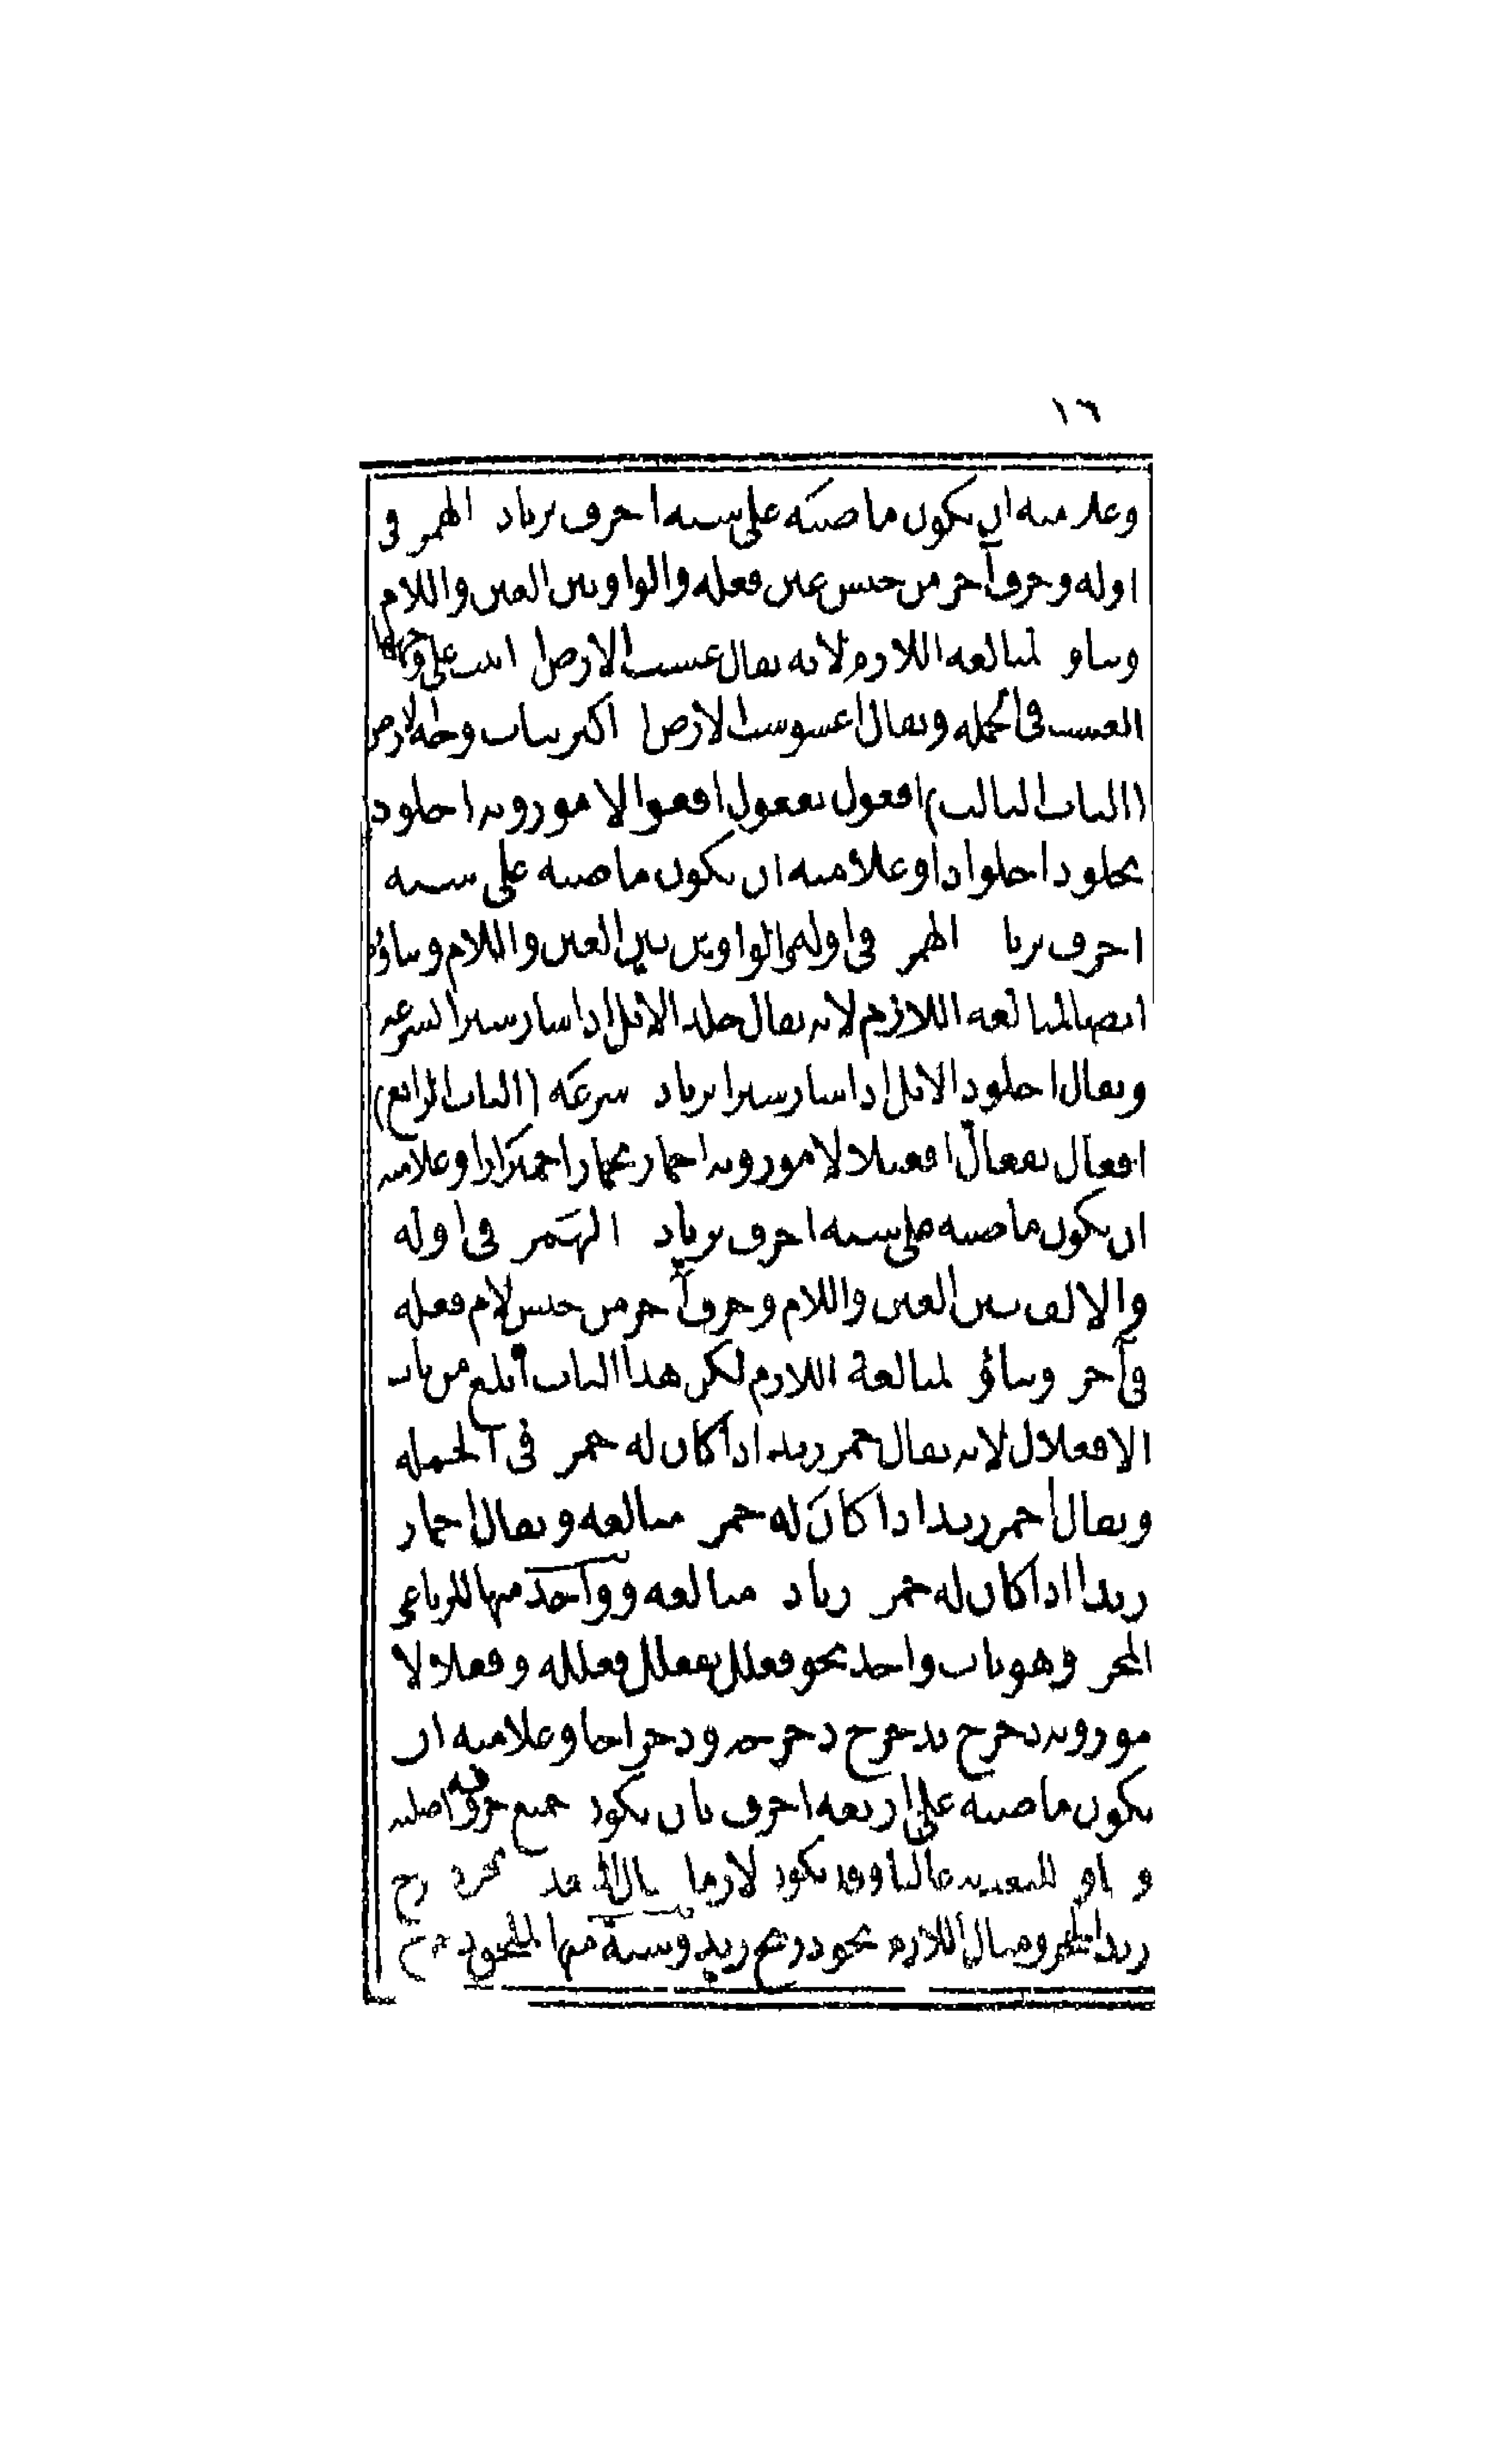 ١٦
وعلامته ان يكون ماضيه على ستة احرف بزيادة الهمزة فى
اوله وحرف آخر من جنس عين فعله والواو بين العين واللام
وبناؤه لمبالغة اللازم لانه يقال عشب الارض اذا نبت على وجهها
العشب فى الجملة ويقال اعشوشب الارض اذا كثر نبات وجه الارض
(الباب الثالث) افعول يفعول افعوالا موزونه اجلوذ
يجلوذ اجلواذا وعلامته ان يكون ماضيه على ستة
احرف بزيادة الهمزة فى اوله والواوين بين العين واللام وبناؤه
ايضا لمبالغة اللازم لانه يقال جلذ الابل اذا سار سيرا بسرعة
ويقال اجلوذ الابل اذا سار سيرا بزيادة سرعة (الباب الرابع)
افعال يفعال افعيلالا موزونه احمار يحمار احميرارا وعلامته
ان يكون ماضيه على ستة احرف بزيادة الهمزة فى اوله
والالف بين العين واللام وحرف آخر من جنس لام فعله
فى آخره وبناؤه لمبالغة اللازم لكن هذا الباب ابلغ من باب
الافعلال لانه يقال حمر زيد اذا كان له حمرة فى الجملة
ويقال احمر زيد اذا كان له حمرة مبالغة ويقال احمار
زيد اذا كان له حمرة زيادة مبالغة وواحد منها للرباعى
المجرد وهو باب واحد نحو فعلل يفعلل فعللة وفعلالا
موزونه دحرج يدحرج دحرجة ودحراجا وعلامته ان
يكون ماضيه على اربعة احرف بان يكون جميع حروفه اصلية
وبناؤه للتعدية غالبا وقد يكون لازما مثال المتعدى نحو دحرج
زيد الحجر ومثال اللازم نحو دربخ زيد وستة منها لملحق دحرج